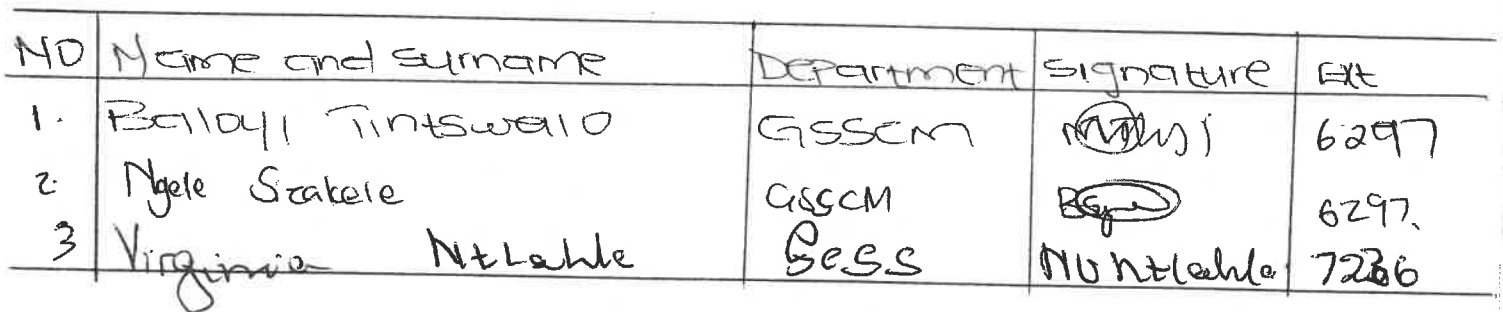 NO Name and surname Department Signature Ext
1. Baloyi Tintswalo GSSCM 6297
2. Ngele Szakele GSSCM 6297.
3 Virginia Ntlahle SCSS NV Ntlahla